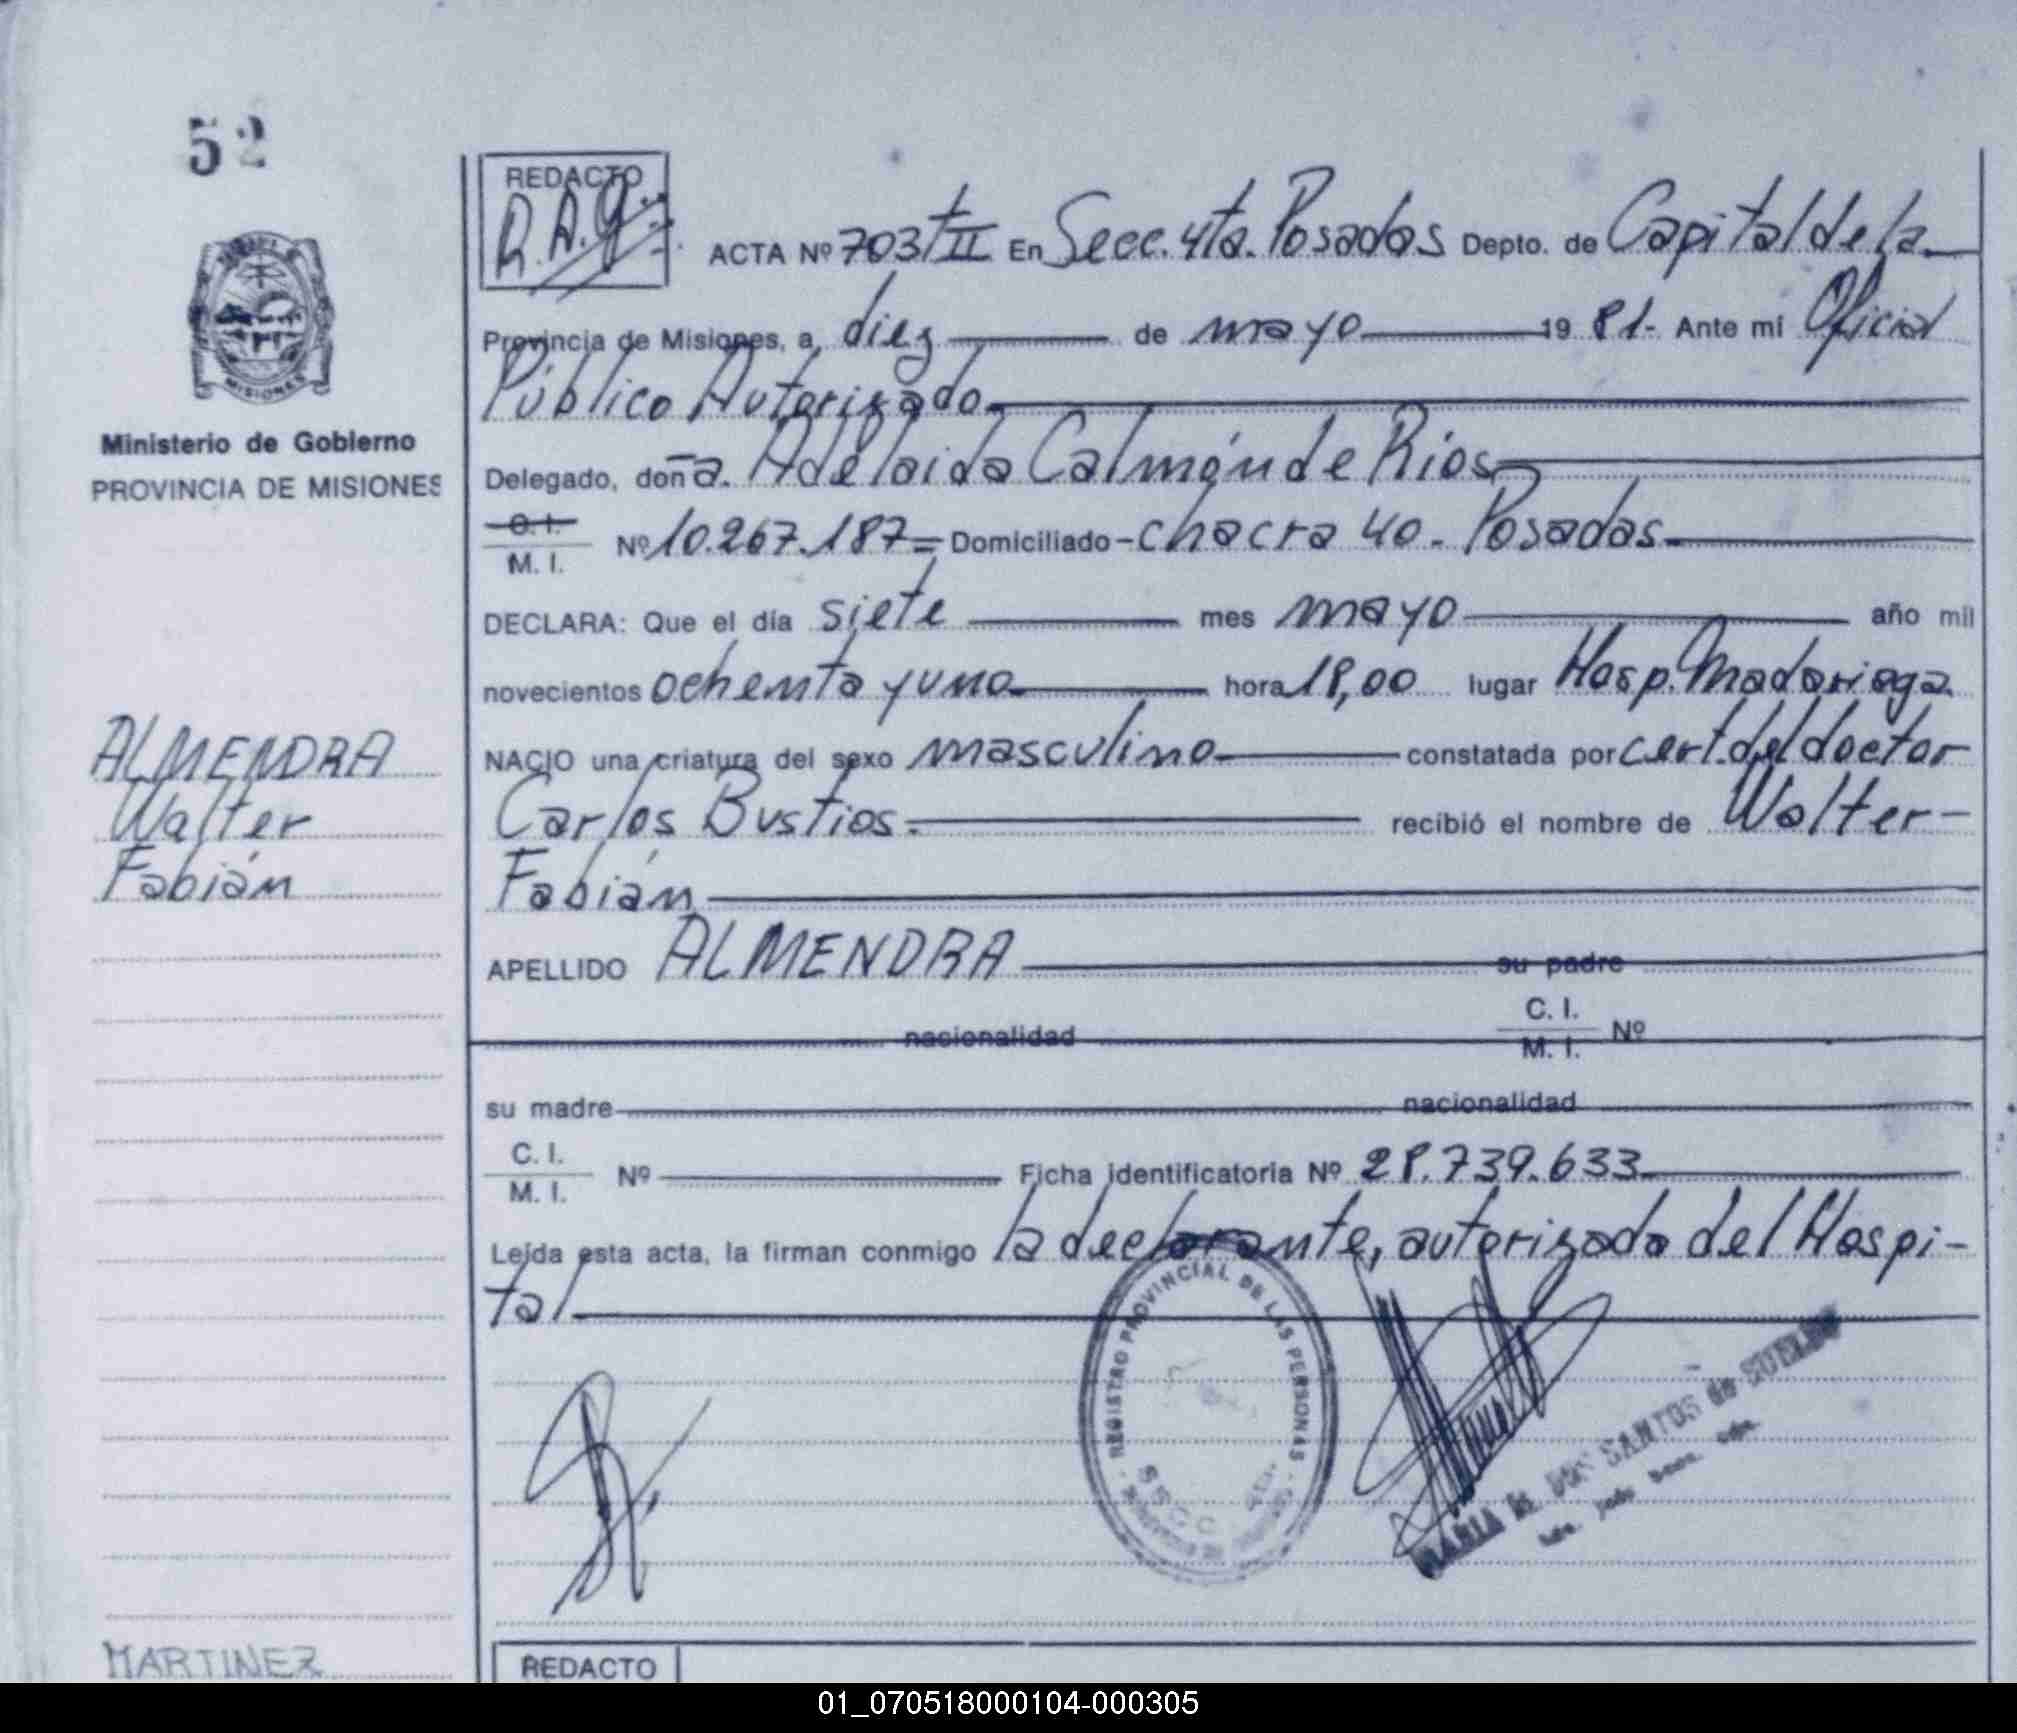 52
REDACTO
ACTA Nº 703 t II En Secc. 4ta. Posadas Depto. de Capital de la
Provincia de Misiones, a diez de mayo 1981.- Ante mí Oficial
Público Autorizado
Ministerio de Gobierno
PROVINCIA DE MISIONES
Delegado, doña. Adelaida Calmón de Ríos
C. I.
M. I. Nº 10.267.187= Domiciliado - chacra 40. Posadas
DECLARA: Que el día siete mes mayo año mil
novecientos ochenta y uno hora 18,00 lugar Hosp. Madariaga.
ALMENDRA
Walter
Fabián
NACIO una criatura del sexo masculino constatada por cert. del doctor
Carlos Bustios. recibió el nombre de Walter-
Fabián
APELLIDO ALMENDRA su padre
nacionalidad C. I.
M. I. Nº
su madre nacionalidad
C. I.
M. I. Nº Ficha identificatoria Nº 28.739.633
Leída esta acta, la firman conmigo la declarante, autorizada del Hospi-
tal
REGISTRO PROVINCIAL DE LAS PERSONAS
MARIA DOS SANTOS de
MARTINEZ
REDACTO
01_070518000104-000305